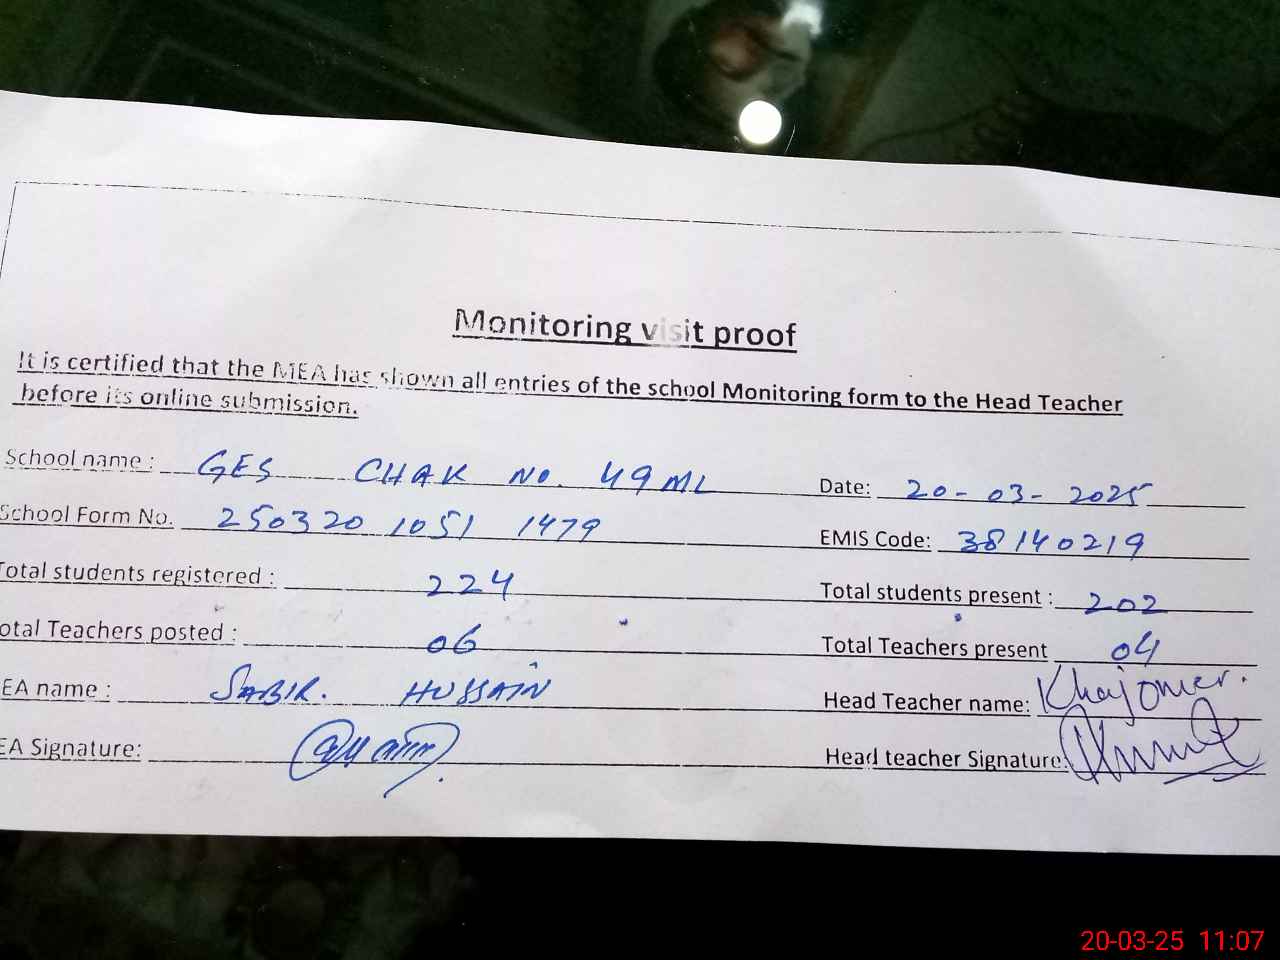 Monitoring visit proof
It is certified that the MEA has shown all entries of the school Monitoring form to the Head Teacher
before its online submission.
School name : GES CHAK NO. 49 ML Date: 20-03-2025
School Form No. 250320 1051 1479 EMIS Code: 38140219
Total students registered : 224 Total students present : 202
otal Teachers posted : 06 Total Teachers present 04
EA name : SABIR. HUSSAIN Head Teacher name:
EA Signature: Head teacher Signature:
20-03-25 11:07